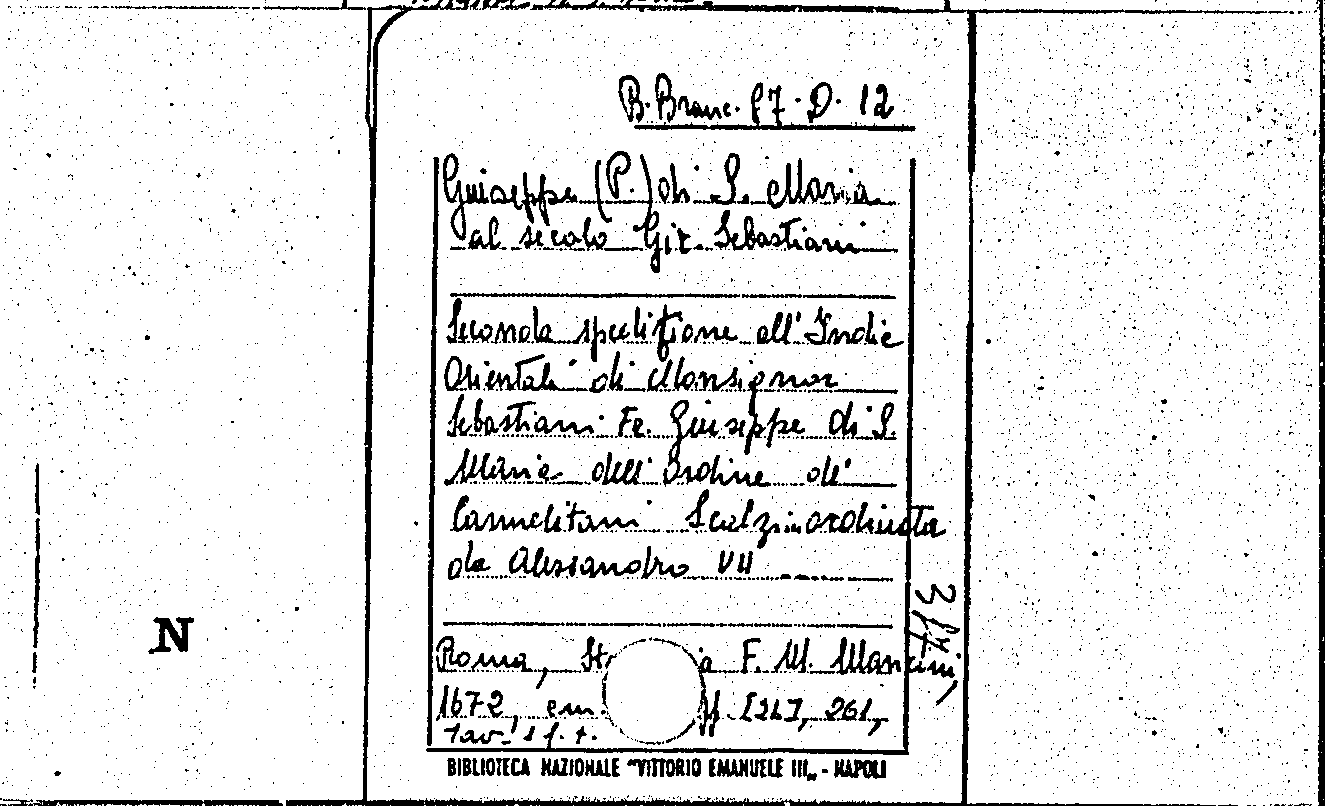 B. Branc. 87. D. 12
Giuseppe (P.) di S. Maria
al secolo Gir. Sebastiani
Seconda speditione all'Indie
Orientali di Monsignor
Sebastiani Fr. Giuseppe di S.
Maria dell'Ordine de'
Carmelitani Scalzi ordinata
da Alessandro VII
Roma, F. M. Mancini,
1672, 261,
N
BIBLIOTECA NAZIONALE "VITTORIO EMANUELE III„ - NAPOLI